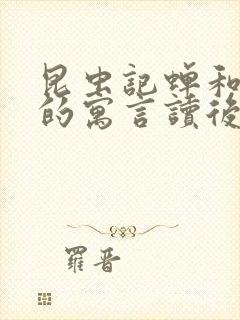 昆虫記蟬和
的寓言讀後
羅晋